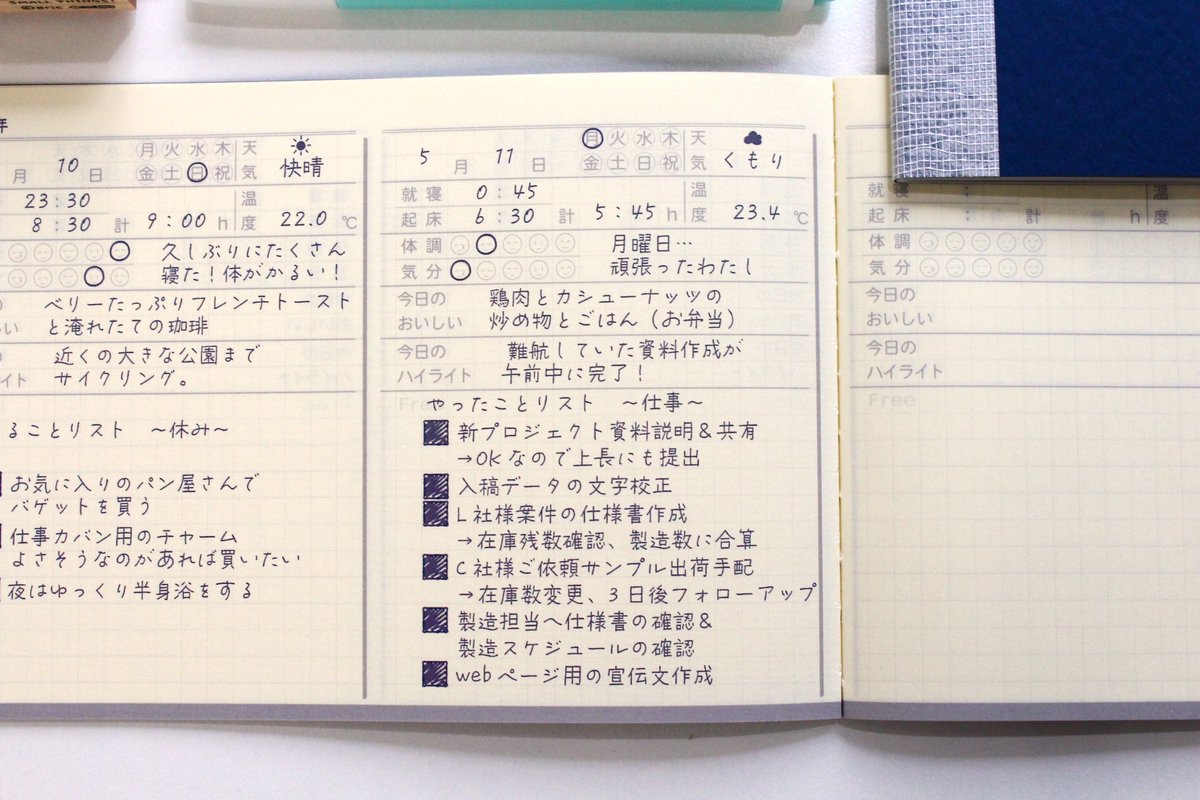 SMALL THINGS!
年
月 10 日 月 火 水 木 天 快晴
金 土 日 祝 気
23:30 温
8:30 計 9:00 h 度 22.0 ℃
久しぶりにたくさん
寝た！体がかるい！
ベリーたっぷりフレンチトースト
と淹れたての珈琲
近くの大きな公園まで
サイクリング。
ることリスト ～休み～
お気に入りのパン屋さんで
バゲットを買う
仕事カバン用のチャーム
よさそうなのがあれば買いたい
夜はゆっくり半身浴をする
5 月 11 日 月 火 水 木 天 くもり
金 土 日 祝 気
就寝 0:45 温
起床 6:30 計 5:45 h 度 23.4 ℃
体調 月曜日…
気分 頑張ったわたし
今日の 鶏肉とカシューナッツの
おいしい 炒め物とごはん（お弁当）
今日の 難航していた資料作成が
ハイライト 午前中に完了！
Free やったことリスト ～仕事～
新プロジェクト資料説明＆共有
→OKなので上長にも提出
入稿データの文字校正
L社様案件の仕様書作成
→在庫残数確認、製造数に合算
C社様ご依頼サンプル出荷手配
→在庫数変更、3日後フォローアップ
製造担当へ仕様書の確認＆
製造スケジュールの確認
webページ用の宣伝文作成
就寝 : 温
起床 : 計 : h 度
体調
気分
今日の
おいしい
今日の
ハイライト
Free